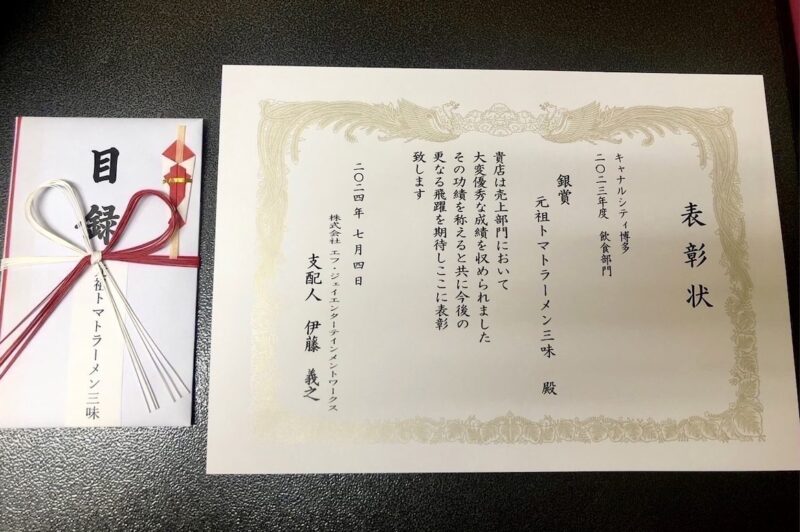 表彰状
キャナルシティ博多
二〇二三年度 飲食部門
銀賞
元祖トマトラーメン三味 殿
貴店は売上部門において
大変優秀な成績を収められました
その功績を称えると共に今後の
更なる飛躍を期待しここに表彰
致します
二〇二四年 七月四日
株式会社 エフ・ジェイエンターテインメントワークス
支配人 伊藤 義之
目録
祖トマトラーメン三味